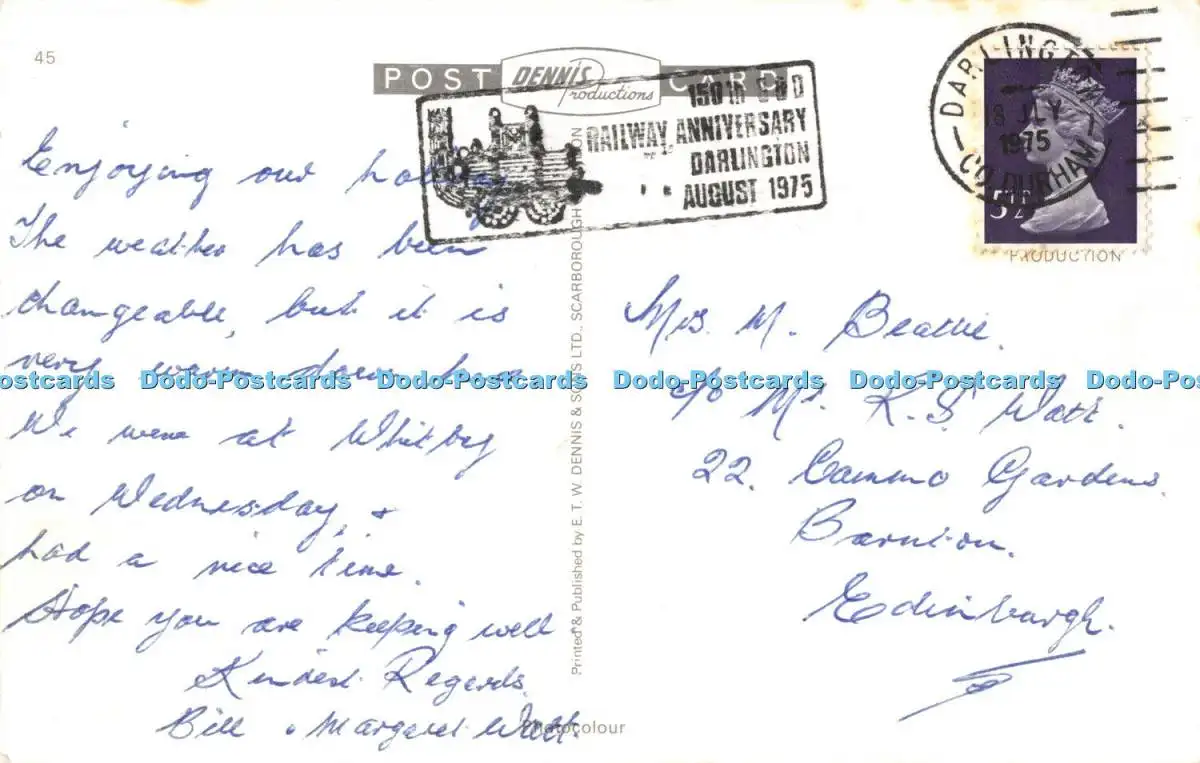 45
POST CARD
DENNIS
Productions
150th S & D
RAILWAY ANNIVERSARY
DARLINGTON
AUGUST 1975
DARLINGTON
18 JLY
1975
CO. DURHAM
5½P
PRODUCTION
Enjoying our holiday
The weather has been
changeable, but it is
very warm down here
We were at Whitby
on Wednesday, &
had a nice time.
Hope you are keeping well
Kindest Regards.
Bill & Margaret Watt.
Printed & Published by E. T. W. DENNIS & SONS LTD., SCARBOROUGH
Mrs. M. Beattie.
c/o Mr. K. S. Watt.
22. Cammo Gardens.
Barnton.
Edinburgh.
Photocolour
Dodo-Postcards Dodo-Postcards Dodo-Postcards Dodo-Postcards Dodo-Postcards Dodo-Postcards